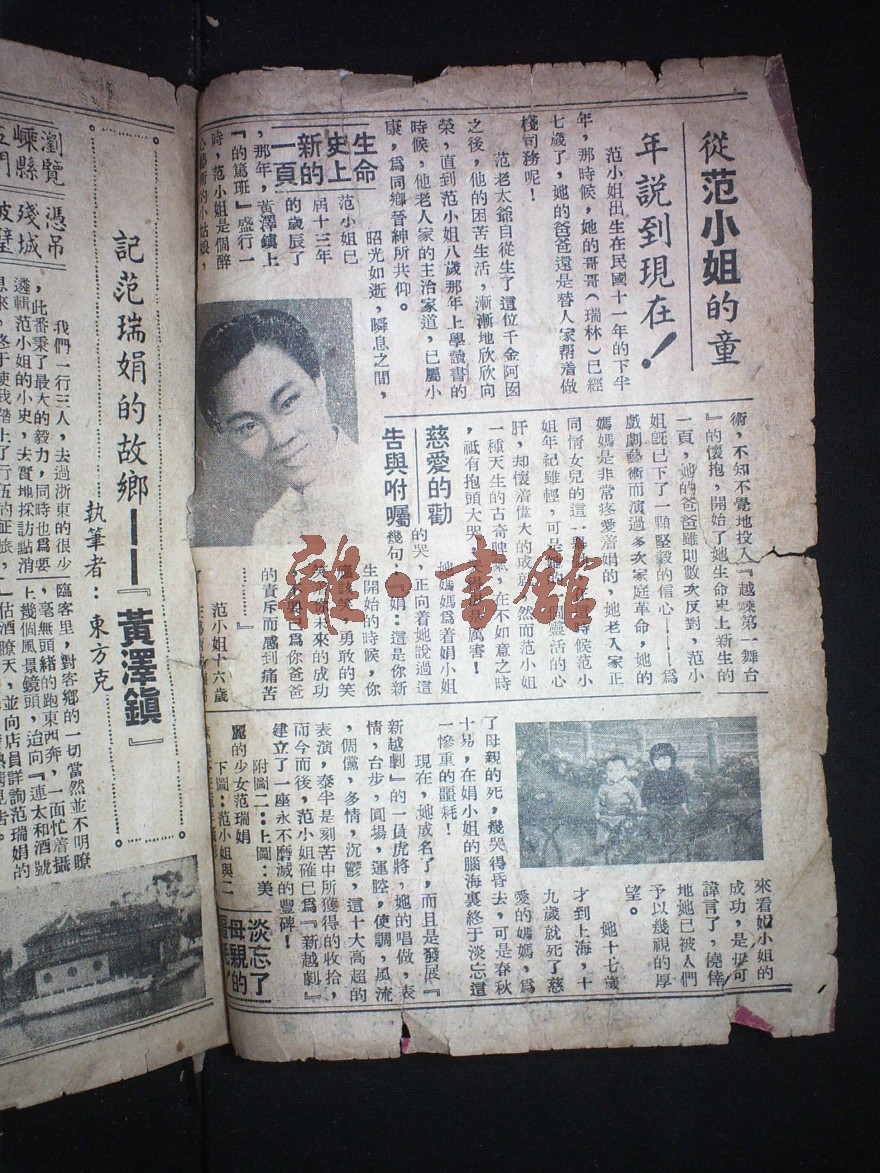 從范小姐的童
年說到現在！
范小姐出生在民國十一年的下半
年，那時候，她的哥哥（瑞林）已經
七歲了，她的爸爸還是替人家帮着做
棧司務呢！
范老太爺自從生了這位千金阿囡
之後，他的困苦生活，漸漸地欣欣向
榮，直到范小姐八歲那年上學讀書的
時候，他老人家的主治家道，已屬小
康，爲同鄉晉紳所共仰。
昭光如逝，瞬息之間，
生命
史上
新的
一頁
范小姐已
屆十三年
的歲辰了
，那年，黃澤鎮上
『的篤班』盛行一
時，范小姐是個醉
心藝術的小姑娘，
術，不知不覺地投入『越嵊第一舞台
』的懷抱，開始了她生命史上新生的
一頁，她的爸爸雖則數次反對，范小
姐旣已下了一顆堅毅的信心——爲
戲劇藝術而演過多次家庭革命，她的
媽媽是非常疼愛着娟的，她老人家正
同情女兒的這一
時候范小
姐年紀雖輕，可是
個靈活的心
肝，却懷着偉大的成
然而范小姐
一種天生的古奇脾氣，在不如意之時
，祗有抱頭大哭
厲害！
慈愛的勸
告與咐囑
她媽媽爲着娟小姐
的哭，正向着她說過這
幾句：『娟：這是你新
生開始的時候，你
應該笑，勇敢的笑
未來的成功
已爲你爸爸
的責斥而感到痛苦
………』
范小姐十六歲
來看娟小姐的
成功，是毋可
諱言了，僥倖
地她已被人們
予以幾視的厚
望。
她十七歲
才到上海，十
九歲就死了慈
愛的媽媽，爲
了母親的死，幾哭得昏去，可是春秋
十易，在娟小姐的腦海裏終于淡忘這
一慘重的噩耗！
現在，她成名了，而且是發展『
新越劇』的一員虎將，她的唱做，表
情，台步，圓場，運腔，使調，風流
，倜儻，多情，沉鬱，這十大高超的
表演，泰半是刻苦中所獲得的收拾，
而今而後，范小姐確已爲『新越劇』
建立了一座永不磨滅的豐碑！
附圖二：上圖：美
麗的少女范瑞娟
下圖：范小姐與二
淡忘了
母親的
記范瑞娟的故鄉——『黃澤鎮』
執筆者：東方克
瀏覽
嵊縣
憑吊
殘城
我們一行三人，去過浙東的很少
，此番秉了最大的毅力，同時也爲要
遴輯范小姐的小史，去實地採訪點消
息來，終于使我踏上了行伍的征旅，
臨客里，對客鄉的一切當然並不明瞭
，毫無頭緒的跑東西奔，一面忙着攝
上幾個風景鏡頭，迨向『連太和酒號
』估酒瞭天，並向店員詳詢范瑞娟的
雅·書館